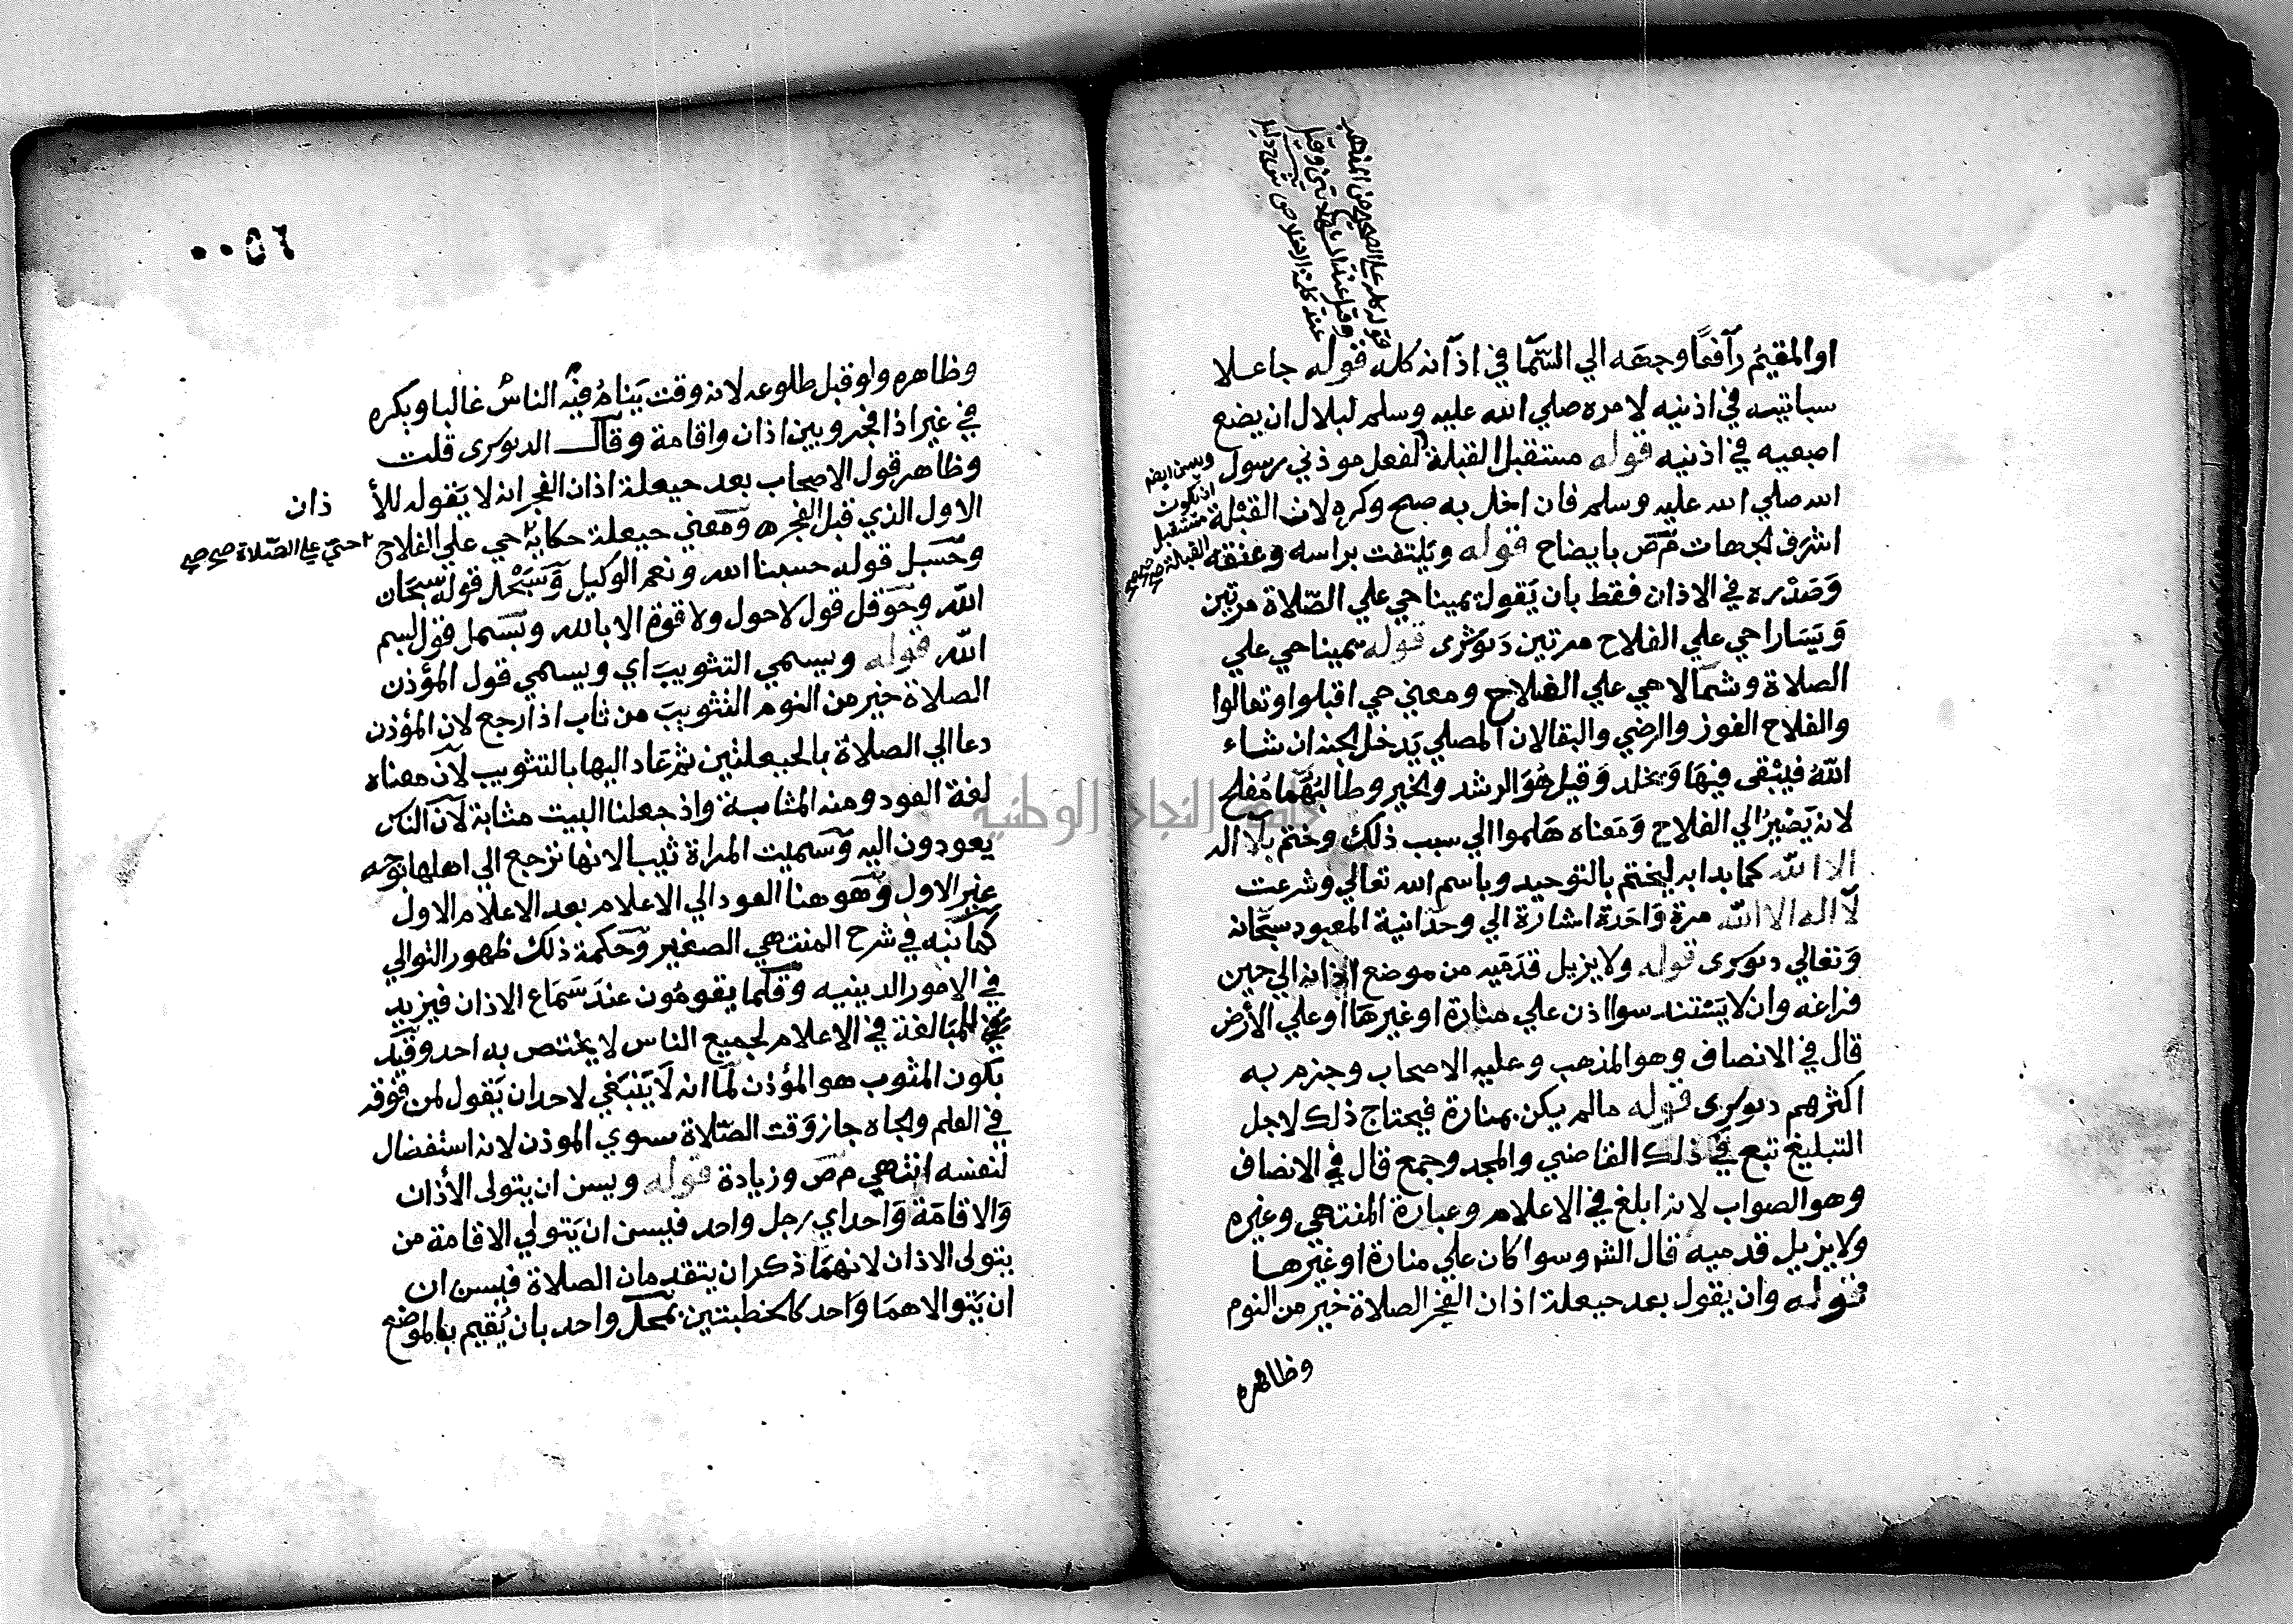 قوله كله على الصحيح من المذهب
وقيل عند الشهادتين وقيل
عند كلمة الاخلاص
او المقيم رافعا وجهه الي السما في اذانه كله قوله جاعلا
سبابتيه في اذنيه لامره صلي الله عليه وسلم لبلال ان يضع
اصبعيه في اذنيه قوله مستقبل القبلة لفعل موذني رسول
الله صلي الله عليه وسلم فان اخل به صح وكره لان القبلة
اشرف الجهات م ص بايضاح قوله ويلتفت براسه وعنقه
وصدره في الاذان فقط بان يقول يمينا حي علي الصلاة مرتين
ويسارا حي علي الفلاح مرتين دنوشري قوله يمينا حي علي
الصلاة وشمالا حي علي الفلاح ومعني حي اقبلوا وتعالوا
والفلاح الفوز والرضي والبقا لان المصلي يدخل الجنه ان شاء
الله فيبقى فيها ويخلد وقيل هو الرشد والخير وطالبهما مفلح
لانه يصير الي الفلاح ومعناه هلموا الي سبب ذلك وختم بلا اله
الا الله كما بدا به ليختم بالتوحيد وباسم الله تعالي وشرعت
لا اله الا الله مرة واحدة اشارة الي وحدانية المعبود سبحانه
وتعالي دنوشري قوله ولا يزيل قدميه من موضع اذانه الي حين
فراغه وان لا يستند سوا اذن علي منارة او غيرها او علي الأرض
قال في الانصاف وهو المذهب وعليه الاصحاب وجزم به
اكثرهم دنوشري قوله مالم يكن بمنارة فيحتاج ذلك لاجل
التبليغ تبع في ذلك القاضي والمجد وجمع قال في الانصاف
وهو الصواب لانه ابلغ في الاعلام وعبارة المنتهي وغيره
ولا يزيل قدميه قال الش وسوا كان علي منارة او غيرها
قوله وان يقول بعد حيعلة اذان الفجر الصلاة خير من النوم
وظاهره
ويسن ايضا
ان يكون
مستقبل
القبلة صح صح
٠٠٥٦
وظاهره ولو قبل طلوعه لانه وقت ينام فيه الناس غالبا ويكره
في غير اذا الفجر وبين اذان واقامة وقال الدنوشرى قلت
وظاهر قول الاصحاب بعد حيعلة اذان الفجر انه لا يقوله للأ ذان
الاول الذي قبل الفجر ه ومعني حيعلة حكاية حي علي الفلاح
حي علي الصلاة صح صح
وحسبل قوله حسبنا الله ونعم الوكيل وسبحل قوله سبحان
الله وحوقل قول لا حول ولا قوة الا بالله وبسمل قول بسم
الله قوله ويسمي التثويب اي ويسمي قول المؤذن
الصلاة خير من النوم التثويب من ثاب اذا رجع لان المؤذن
دعا الي الصلاة بالحيعلتين ثم عاد اليها بالتثويب لان معناه
لغة العود ومنه المثابة واذ جعلنا البيت مثابة لان الناس
يعودون اليه وسميت المراة ثيبا لانها ترجع الي اهلها بوجه
غير الاول وهو هنا العود الي الاعلام بعد الاعلام الاول
كما نبه في شرح المنتهي الصغير وحكمة ذلك ظهور التوالي
في الامور الدينيه وقلما يقومون عند سماع الاذان فيزيد
في المبالغة في الاعلام لجميع الناس لا يختص به احد وقيد
بكون المثوب هو المؤذن لما انه لا ينبغي لاحد ان يقول لمن فوقه
في العلم والجاه جاز وقت الصلاة سوي الموذن لانه استفضال
لنفسه انتهي م ص وزيادة قوله ويسن ان يتولى الأذان
والاقامة واحد اي رجل واحد فيسن ان يتولي الاقامة من
يتولى الاذان لانهما ذكران يتقدمان الصلاة فيسن ان
ان يتوالاهما واحد كالخطبتين بمحل واحد بان يقيم بالموضع